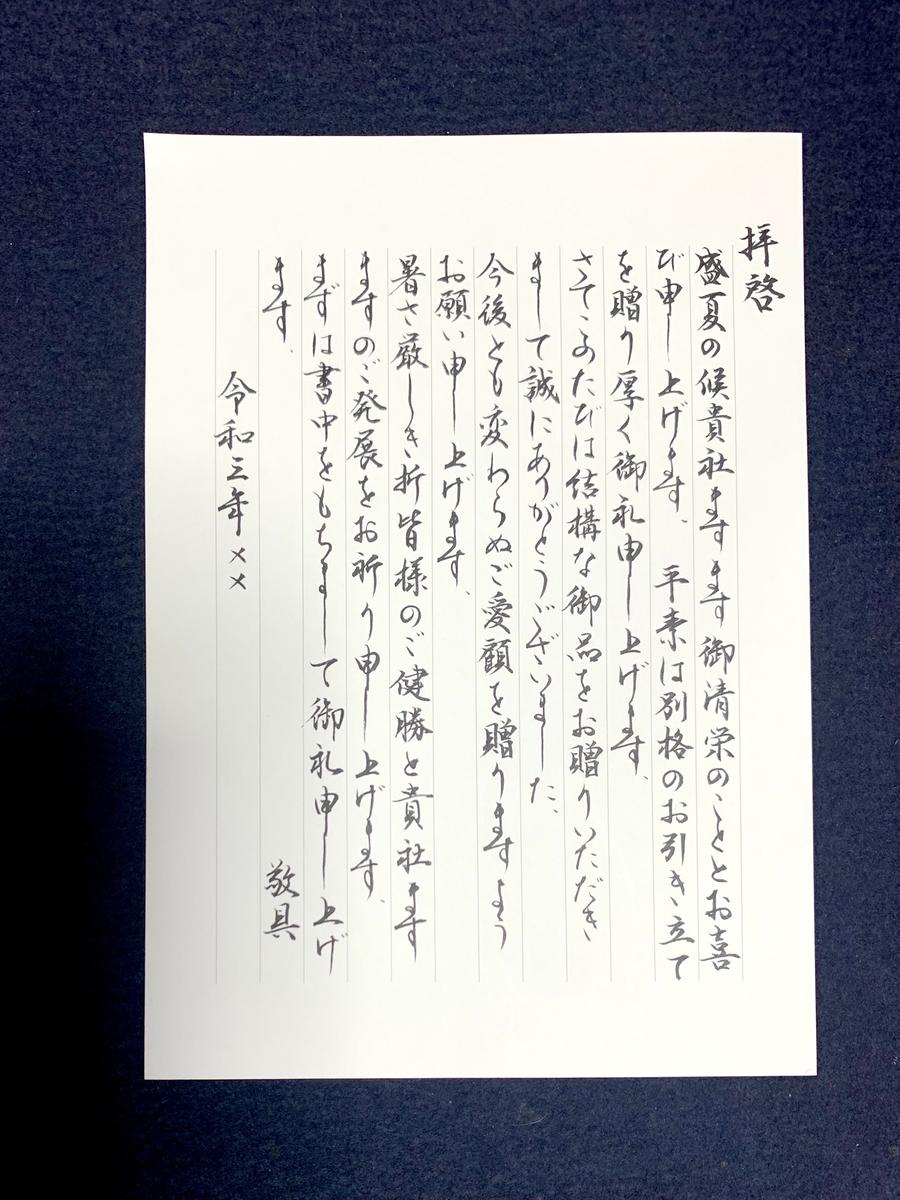 拝啓
盛夏の候貴社ますます御清栄のこととお喜
び申し上げます、平素は別格のお引き立て
を贈り厚く御礼申し上げます、
さてこのたびは結構な御品をお贈りいただき
まして誠にありがとうございました、
今後とも変わらぬご愛顧を贈りますよう
お願い申し上げます、
暑さ厳しき折皆様のご健勝と貴社ます
ますのご発展をお祈り申し上げます、
まずは書中をもちまして御礼申し上げ
ます、
敬具
令和三年××